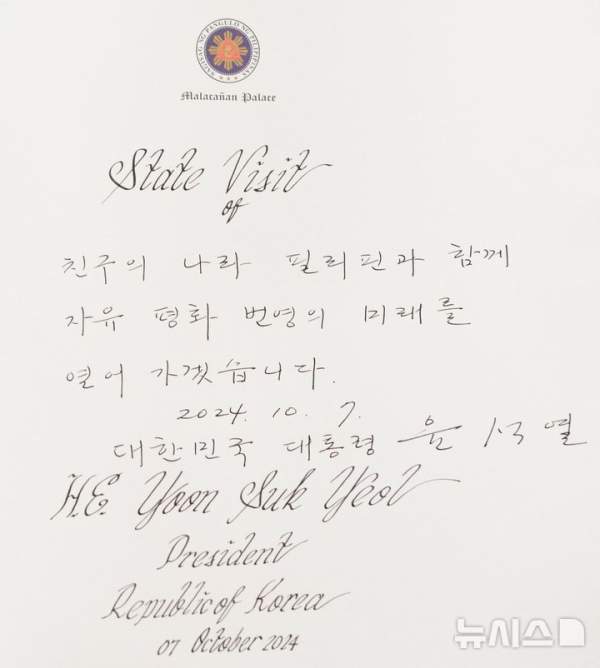 SAGISAG NG PANGULO NG PILIPINAS
Malacañan Palace
State Visit
of
친구의 나라 필리핀과 함께
자유 평화 번영의 미래를
열어 가겠습니다.
2024. 10. 7.
대한민국 대통령 윤석열
H.E. Yoon Suk Yeol
President
Republic of Korea
07 October 2024
뉴시스